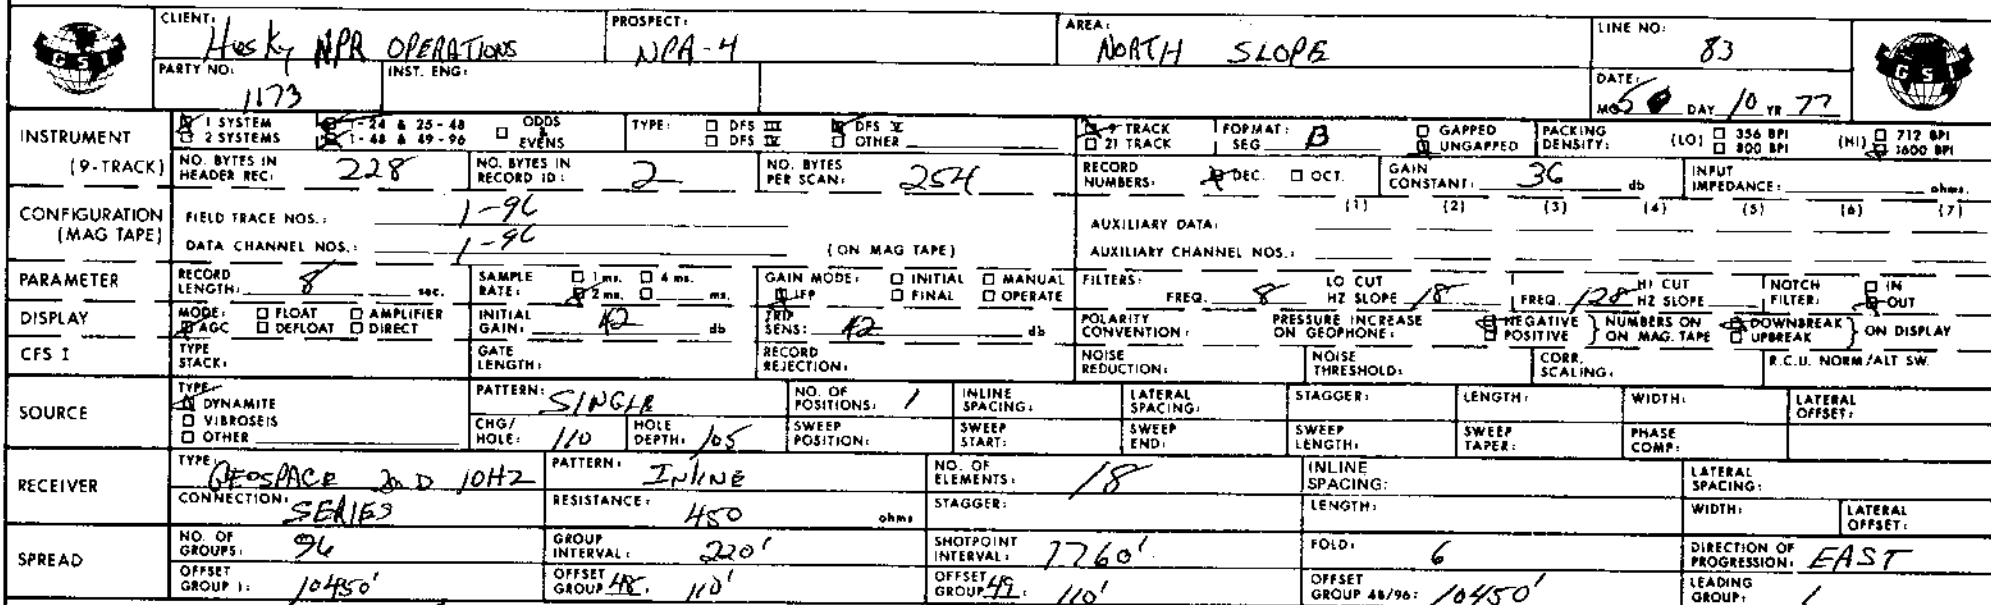 GSI CLIENT: Husky NPR OPERATIONS PROSPECT: NPR-4 AREA: NORTH SLOPE LINE NO: 83 GSI
PARTY NO: 1173 INST. ENG: DATE: MO 5 DAY 10 YR 77
INSTRUMENT 1 SYSTEM 1-24 & 25-48 ODDS & EVENS TYPE: DFS III DFS V 9 TRACK FORMAT: SEG B GAPPED PACKING DENSITY: (LO) 356 BPI (HI) 712 BPI
2 SYSTEMS 1-48 & 49-96 DFS IV OTHER 21 TRACK UNGAPPED 800 BPI 1600 BPI
(9-TRACK) NO. BYTES IN HEADER REC: 228 NO. BYTES IN RECORD ID: 2 NO. BYTES PER SCAN: 254 RECORD NUMBERS: DEC. OCT. GAIN CONSTANT: 36 db INPUT IMPEDANCE: ohms.
CONFIGURATION (MAG TAPE) FIELD TRACE NOS.: 1-96 AUXILIARY DATA: (1) (2) (3) (4) (5) (6) (7)
DATA CHANNEL NOS.: 1-96 (ON MAG TAPE) AUXILIARY CHANNEL NOS.:
PARAMETER RECORD LENGTH: 8 sec. SAMPLE RATE: 1 ms. 4 ms. 2 ms. ms. GAIN MODE: INITIAL MANUAL IFP FINAL OPERATE FILTERS: FREQ. 8 LO CUT HZ SLOPE 18 FREQ. 128 HI CUT HZ SLOPE NOTCH FILTER: IN OUT
DISPLAY MODE: FLOAT AMPLIFIER AGC DEFLOAT DIRECT INITIAL GAIN: 42 db TRIP SENS: 42 db POLARITY CONVENTION: PRESSURE INCREASE ON GEOPHONE: NEGATIVE POSITIVE NUMBERS ON ON MAG. TAPE DOWNBREAK UPBREAK ON DISPLAY
CFS I TYPE STACK: GATE LENGTH: RECORD REJECTION: NOISE REDUCTION: NOISE THRESHOLD: CORR. SCALING: R.C.U. NORM/ALT SW.
SOURCE TYPE DYNAMITE VIBROSEIS OTHER PATTERN: SINGLE NO. OF POSITIONS: 1 INLINE SPACING: LATERAL SPACING: STAGGER: LENGTH: WIDTH: LATERAL OFFSET:
CHG/HOLE: 110 HOLE DEPTH: 105 SWEEP POSITION: SWEEP START: SWEEP END: SWEEP LENGTH: SWEEP TAPER: PHASE COMP:
RECEIVER TYPE: GEOSPACE 20 D 10HZ PATTERN: INLINE NO. OF ELEMENTS: 18 INLINE SPACING: LATERAL SPACING:
CONNECTION: SERIES RESISTANCE: 450 ohms STAGGER: LENGTH: WIDTH: LATERAL OFFSET:
SPREAD NO. OF GROUPS: 96 GROUP INTERVAL: 220' SHOTPOINT INTERVAL: 1760' FOLD: 6 DIRECTION OF PROGRESSION: EAST
OFFSET GROUP 1: 10450' OFFSET GROUP 48: 110' OFFSET GROUP 49: 110' OFFSET GROUP 48/96: 10450' LEADING GROUP: 1